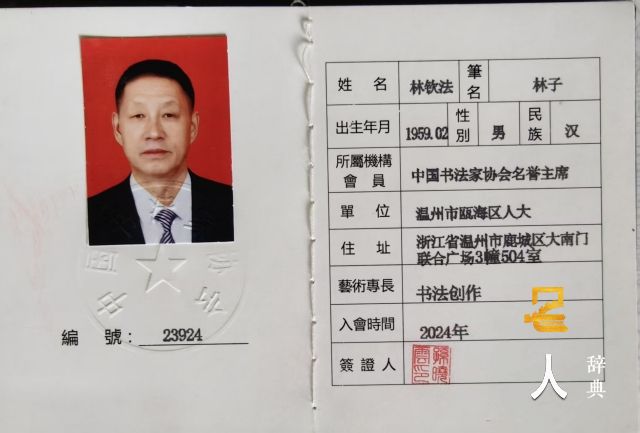 編 號： 23924
姓 名 林钦法 筆名 林子
出生年月 1959.02 性別 男 民族 汉
所屬機構
會 員 中国书法家协会名誉主席
單 位 温州市瓯海区人大
住 址 浙江省温州市鹿城区大南门
联合广场3幢504室
藝術專長 书法创作
入會時間 2024年
簽證人
人 辞典